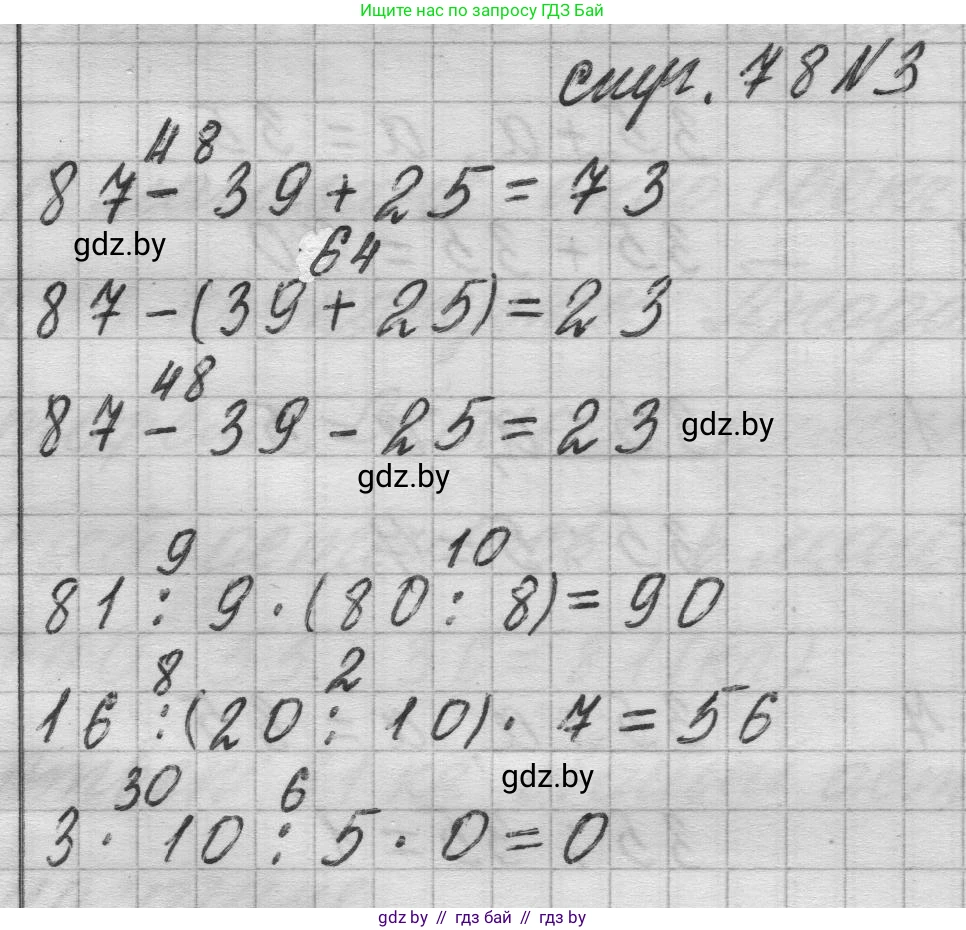 Ищите нас по запросу ГДЗ Бай
стр. 78 N 3
48
87 - 39 + 25 = 73
gdz.by
64
87 - (39 + 25) = 23
48
87 - 39 - 25 = 23 gdz.by
gdz.by
9 10
81 : 9 · (80 : 8) = 90
8 2
16 : (20 : 10) · 7 = 56
gdz.by
30 6
3 · 10 : 5 · 0 = 0
gdz.by // гдз бай // гдз by